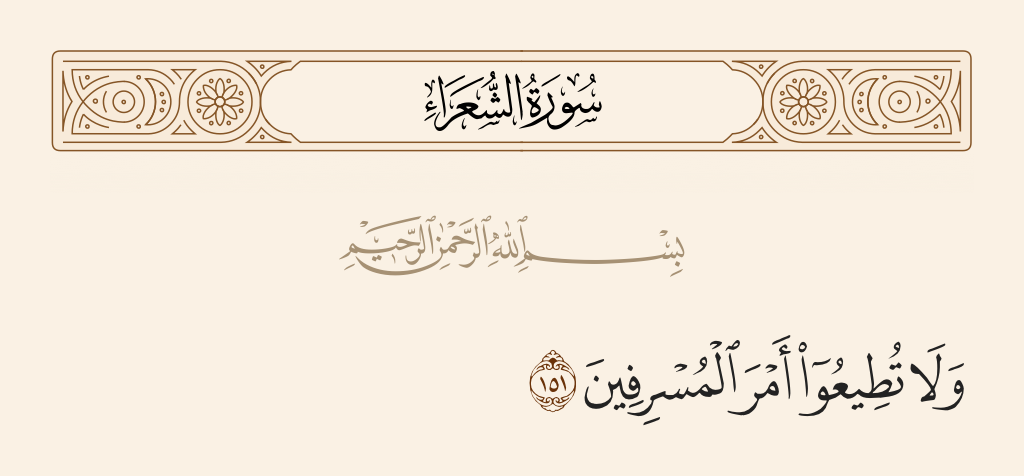 سُورَةُ الشُّعَرَاءِ
بِسْمِ ٱللَّهِ ٱلرَّحْمَٰنِ ٱلرَّحِيمِ
وَلَا تُطِيعُوٓا۟ أَمْرَ ٱلْمُسْرِفِينَ ١٥١